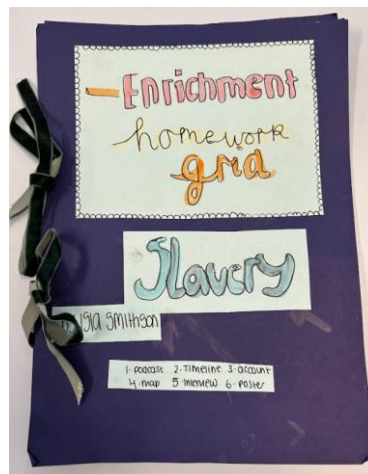 Enrichment
homework
grid
Slavery
Isla Smithson
1. podcast 2. Timeline 3. account
4. map 5. interview 6. poster